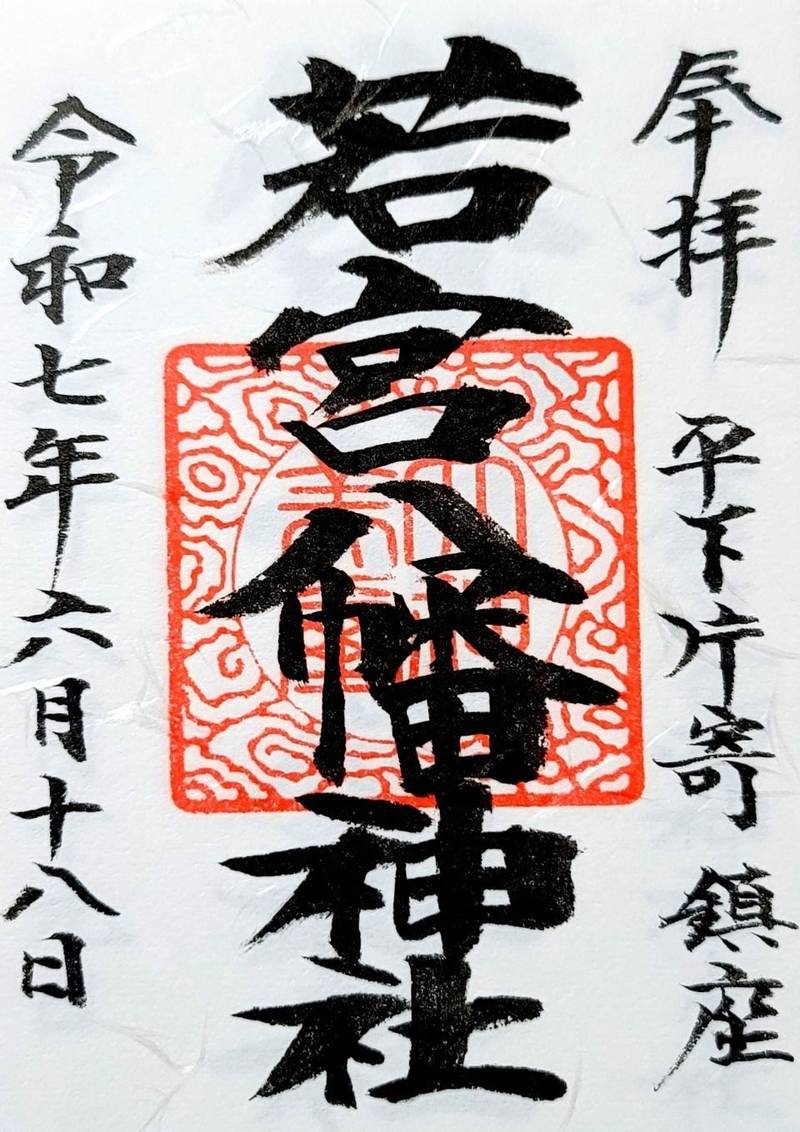 奉拝
平下片寄 鎮座
若宮八幡神社
令和七年六月十八日